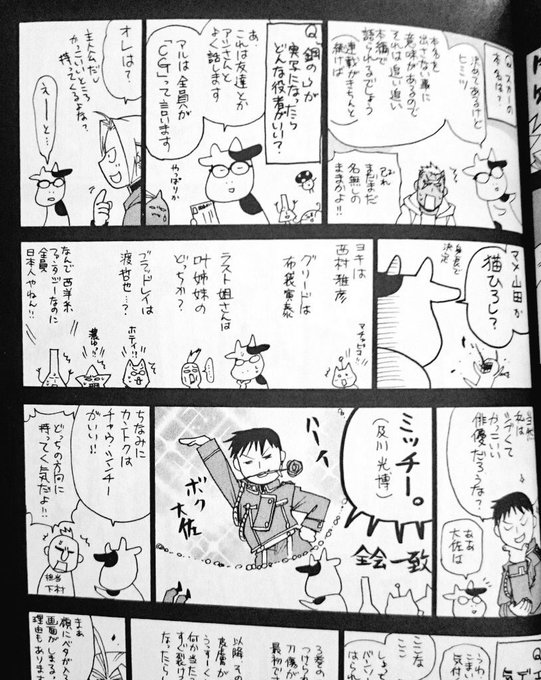 Q.スカーの
本名は？
決めてあるけど
ヒミツ
本名を
出さない事に
意味があるので
それは追い追い
本編で
語られるでしょう
連載がきちんと
続けば
おれ
まだまだ
名無しの
ままかよ!!
実写になったら
どんな役者がいい？
あ、
これは友達とか
アシさんと
よく話します
アルは全員が
「CG」って言います
やっぱりか
オレは？
主人公だし
かっこいいところ
持ってくるよな？
えーと…
身長で
決定
マメ山田か
猫ひろし？
ヨキは
西村雅彦
グリードは
布袋寅泰
ラスト姐さんは
叶姉妹の
どっちか？
ブラッドレイは
渡哲也…？
ホテイ!!
濃ゆ!!
なんで西洋系
ファンタジーなのに
全員
日本人やねん!!
当然
私は
シブくて
かっこいい
俳優だろうな？
ああ
大佐は
ミッチー。
(及川光博)
全会一致
ハーイ
ボク
大佐
ちなみに
カントクは
チャウ・シンチー
がいい!!
どっちの方向に
持ってく気だよ!!
担当
下村
3巻の
以降
何か当た
すぐ裂け
なったら
まあ
顔にベタが入る
画面がしまる
理由もあります